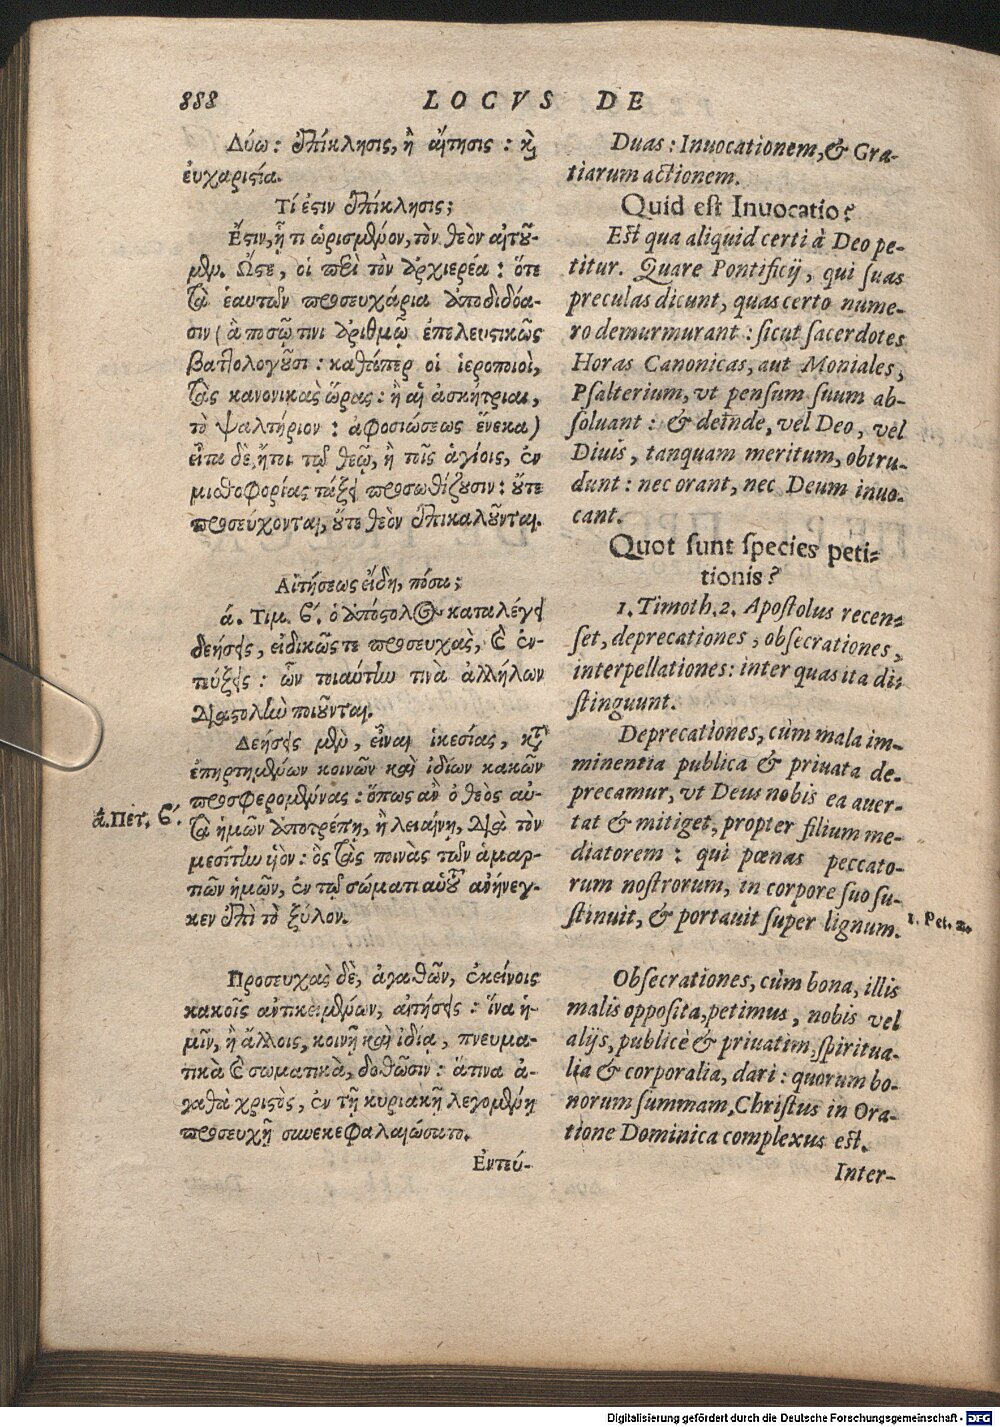 888
LOCVS DE
Δύω: ἐπίκλησις, ἢ αἴτησις: καὶ
εὐχαριστία.
Τί ἐστιν ἐπίκλησις;
Ἔστιν, ᾗ τι ὡρισμένον, τὸν θεὸν αἰτοῦ-
μεν. Ὥστε, οἱ περὶ τὸν ἀρχιερέα: ὅτε
τὰ ἑαυτῶν προσευχάρια ἀποδιδόα-
σιν (ἃ ποσῷ τινι ἀριθμῷ ἐπελευστικῶς
βαττολογοῦσι: καθάπερ οἱ ἱεροποιοὶ,
τὰς κανονικὰς ὥρας: ἢ αἱ ἀσκήτριαι,
τὸ ψαλτήριον: ἀφοσιώσεως ἕνεκα)
εἶτα δὲ, ἤτοι τῷ θεῷ, ἢ τοῖς ἁγίοις, ἐν
μισθοφορίας τάξει προσωθίζουσιν: οὔτε
προσεύχονται, οὔτε θεὸν ἐπικαλοῦνται.
Αἰτήσεως εἴδη, πόσα;
ά. Τιμ. ϐ́. ὁ ἀπόστολος καταλέγει
δεήσεις, εἰδικῶς τε προσευχὰς, καὶ ἐν-
τεύξεις: ὧν τοιαύτην τινὰ ἀλλήλων
διαστολὴν ποιοῦνται.
Δεήσεις μὲν, εἶναι ἱκεσίας, κατὰ
ἐπηρτημένων κοινῶν καὶ ἰδίων κακῶν
προσφερομένας: ὅπως ἂν ὁ θεὸς αὐ-
τὰ ἡμῶν ἀποτρέπῃ, ἢ λειαίνῃ, διὰ τὸν
μεσίτην υἱόν: ὃς τὰς ποινὰς τῶν ἁμαρ-
τιῶν ἡμῶν, ἐν τῷ σώματι αὐτοῦ ἀνήνεγ-
κεν ἐπὶ τὸ ξύλον.
ά. Πέτ. ϐ́.
Προσευχὰς δὲ, ἀγαθῶν, ἐκείνοις
κακοῖς ἀντικειμένων, αἰτήσεις: ἵνα ἡ-
μῖν, ἢ ἄλλοις, κοινῇ καὶ ἰδίᾳ, πνευμα-
τικὰ καὶ σωματικὰ, δοθῶσιν: ἅτινα ἀ-
γαθὰ χριστὸς, ἐν τῇ κυριακῇ λεγομένῃ
προσευχῇ συνεκεφαλαιώσατο.
Ἐντεύ-
Duas: Inuocationem, & Gra-
tiarum actionem.
Quid est Inuocatio?
Est qua aliquid certi à Deo pe-
titur. Quare Pontificij, qui suas
preculas dicunt, quas certo nume-
ro demurmurant: sicut sacerdotes
Horas Canonicas, aut Moniales,
Psalterium, vt pensum suum ab-
soluant: & deinde, vel Deo, vel
Diuis, tanquam meritum, obtru-
dunt: nec orant, nec Deum inuo-
cant.
Quot sunt species peti-
tionis?
1. Timoth. 2. Apostolus recen-
set, deprecationes, obsecrationes,
interpellationes: inter quas ita di-
stinguunt.
Deprecationes, cùm mala im-
minentia publica & priuata de-
precamur, vt Deus nobis ea auer-
tat & mitiget, propter filium me-
diatorem: qui pœnas peccato-
rum nostrorum, in corpore suo su-
stinuit, & portauit super lignum.
1. Pet. 2.
Obsecrationes, cùm bona, illis
malis opposita, petimus, nobis vel
alijs, publicè & priuatim, spiritua-
lia & corporalia, dari: quorum bo-
norum summam, Christus in Ora-
tione Dominica complexus est.
Inter-
Digitalisierung gefördert durch die Deutsche Forschungsgemeinschaft - DFG